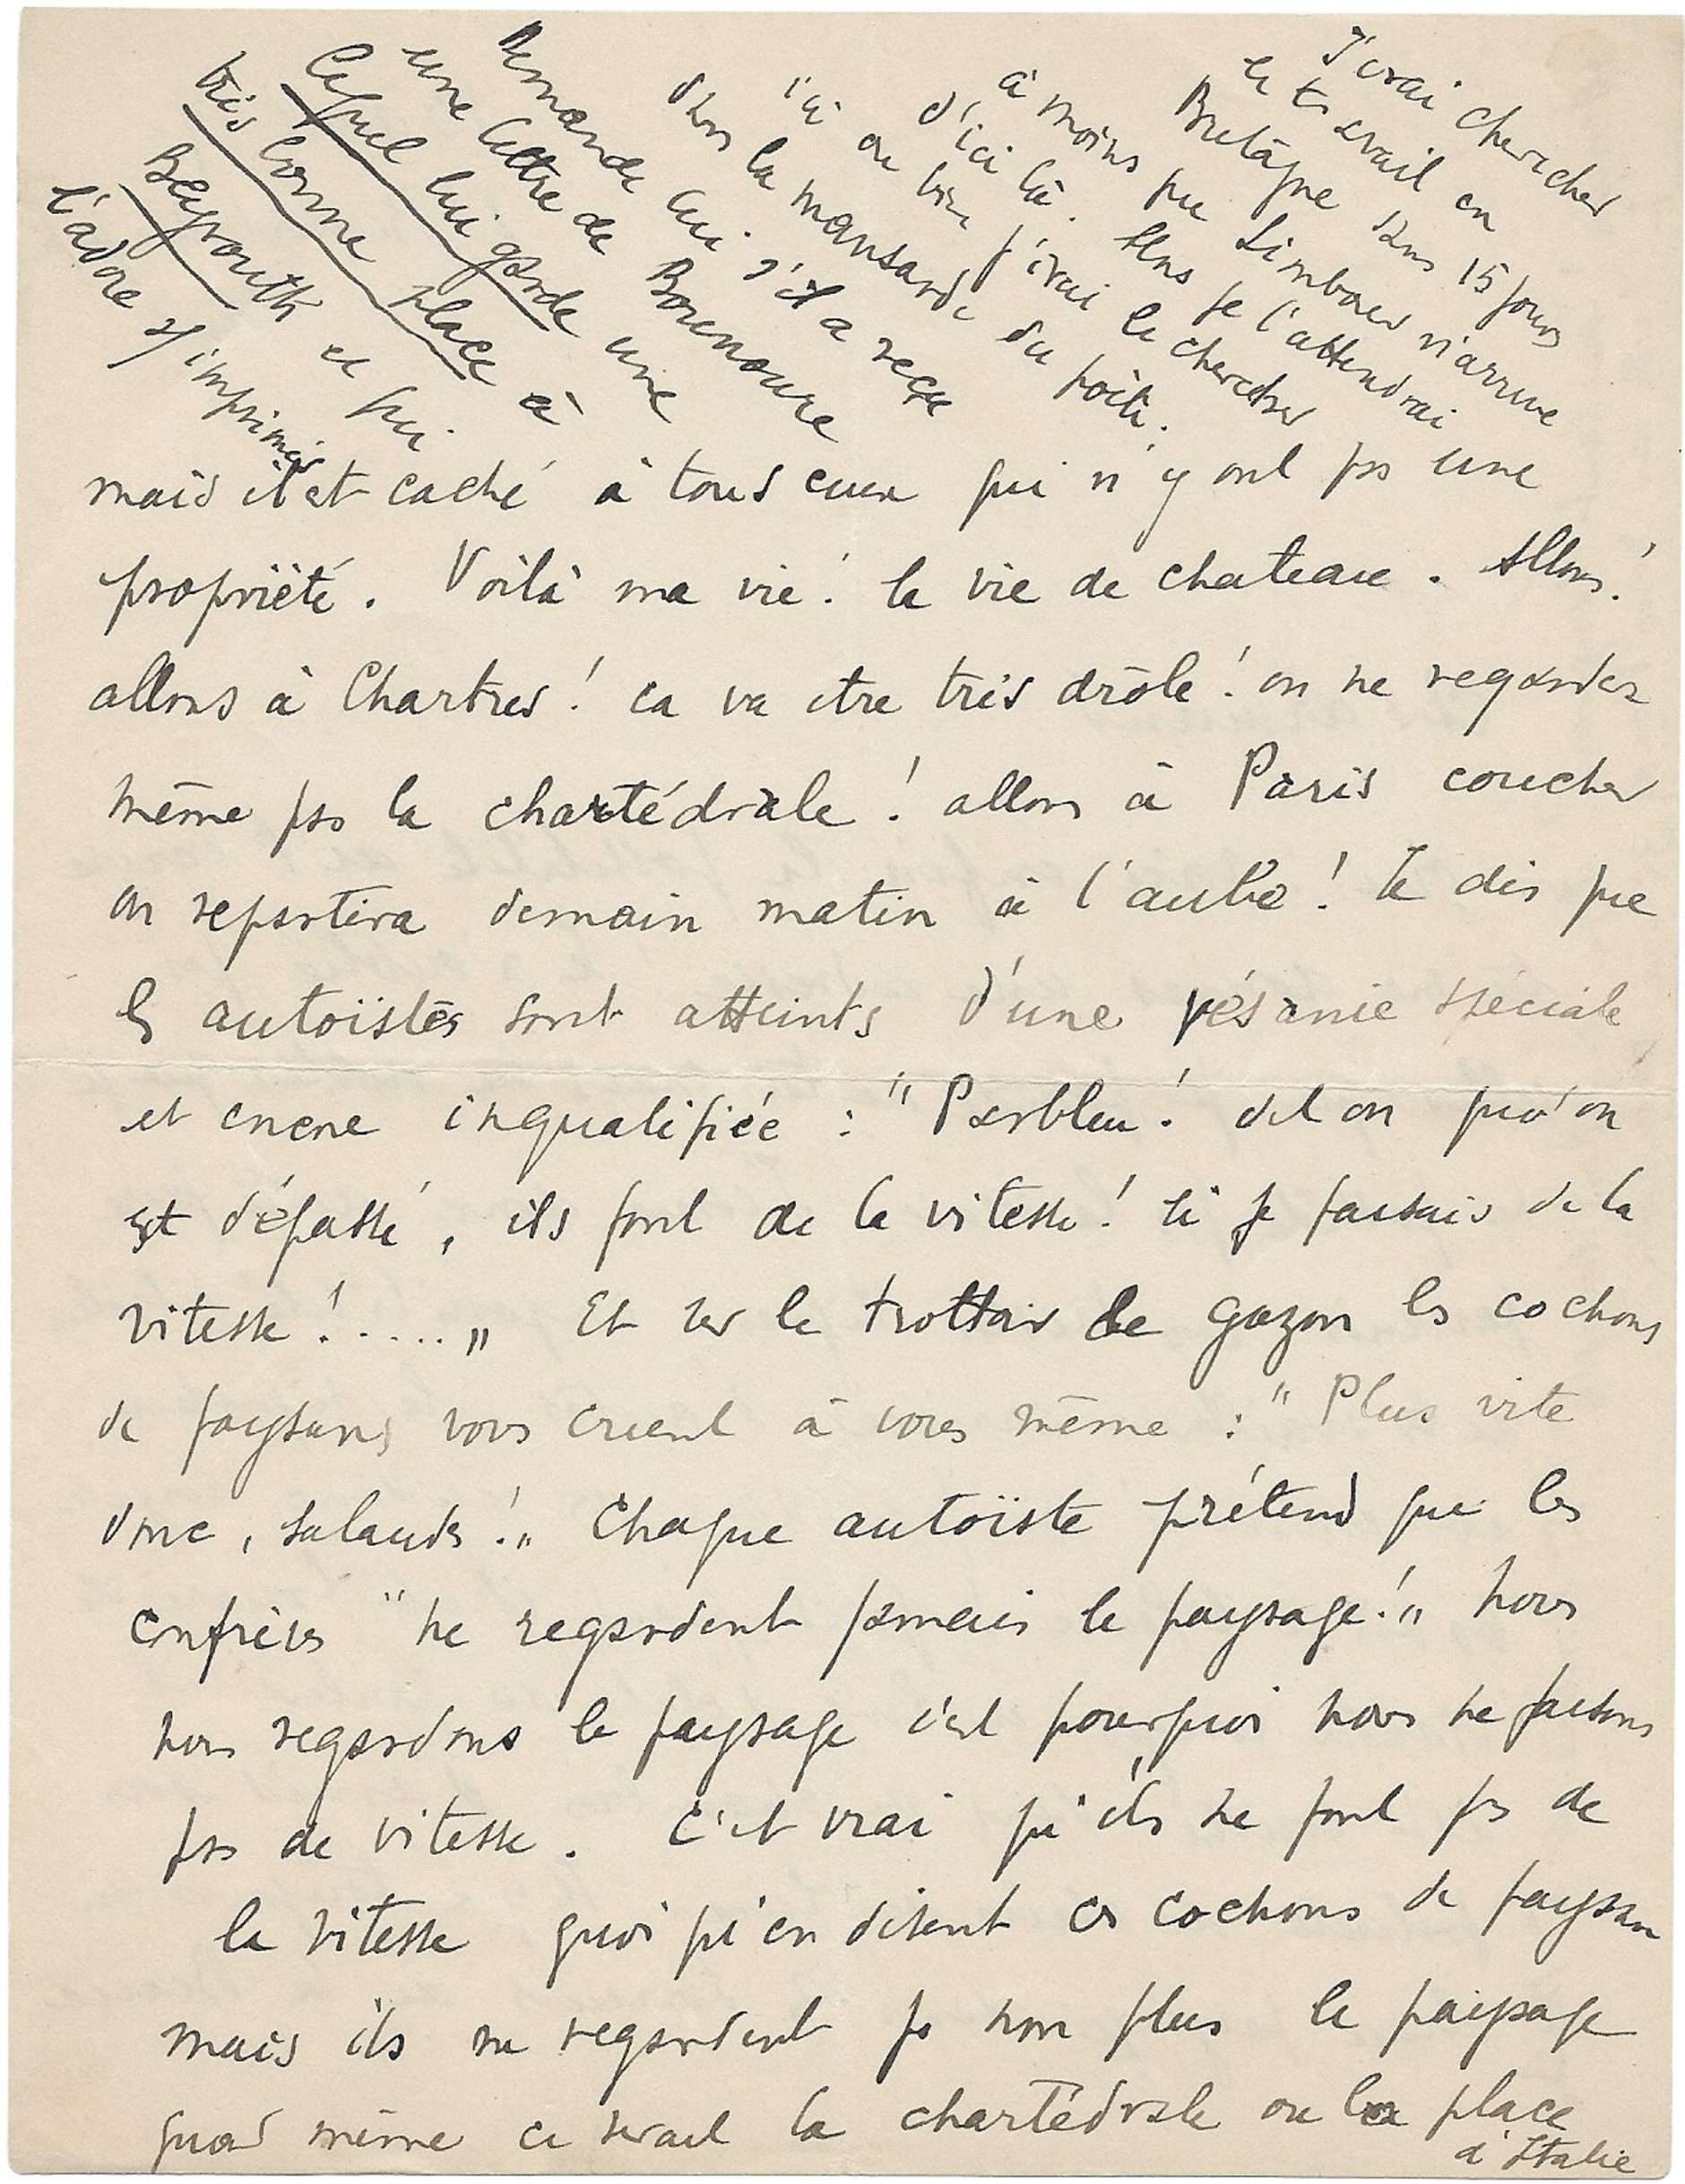 J'irai chercher
le travail en
Bretagne dans 15 jours
à moins que Limbour n'arrive
d'ici là. Alors je l'attendrai
ici ou bien j'irai le chercher
dans la mansarde du poète.
Demande lui s'il a reçu
une lettre de Bounoure
lequel lui garde une
très bonne place à
Beyrouth et qui
l'adore s/ imprimés
mais il est caché à tous ceux qui n'y ont pas une
propriété. Voilà ma vie! la vie de chateau. Allons!
allons à Chartres! ca va etre très drôle! on ne regardera
même pas la chartédrale! allons à Paris coucher
on repartira demain matin à l'aube! Te dis que
les autoïstes sont atteints d'une vésanie spéciale
et encore inqualifiée : "Parbleu! dit on qud on
est dépassé, ils font de la vitesse! si je faisais de la
vitesse!....." Et sur le trottoir de gazon les cochons
de paysans vous crient à vous même : "Plus vite
donc, salauds!" Chaque autoïste prétend que les
confrères "ne regardent jamais le paysage!" nous
nous regardons le paysage c'est pourquoi nous ne faisons
pas de vitesse. C'est vrai qu'ils ne font pas de
la vitesse quoi qu'en disent ces cochons de paysans
mais ils ne regardent pas non plus le paysage
quand même ce serait la chartédrale ou la place
d'Italie